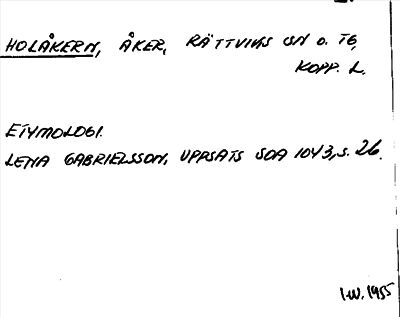 HOLÅKERN, ÅKER, RÄTTVIKS SN O. TG,
KOPP. L.
ETYMOLOGI.
LENA GABRIELSSON, UPPSATS SOA 1043, S. 26.
I.W. 1955